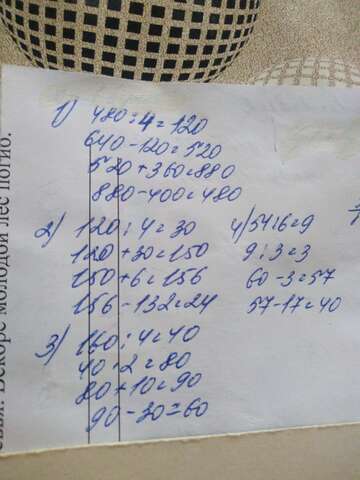 1) 480 : 4 = 120
640 - 120 = 520
520 + 360 = 880
880 - 400 = 480
2) 120 : 4 = 30
120 + 30 = 150
150 + 6 = 156
156 - 132 = 24
3) 160 : 4 = 40
40 · 2 = 80
80 + 10 = 90
90 - 30 = 60
4) 54 : 6 = 9
9 : 3 = 3
60 - 3 = 57
57 - 17 = 40
молодой лес погиб.